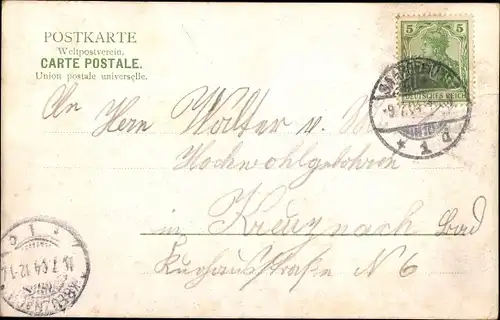 POSTKARTE
Weltpostverein.
CARTE POSTALE.
Union postale universelle.
5 5
DEUTSCHES REICH
An Herrn Walter v.
Hochwohlgebohren
in Kreuznach Bad
Kurhausstraße N 6
* 1 d